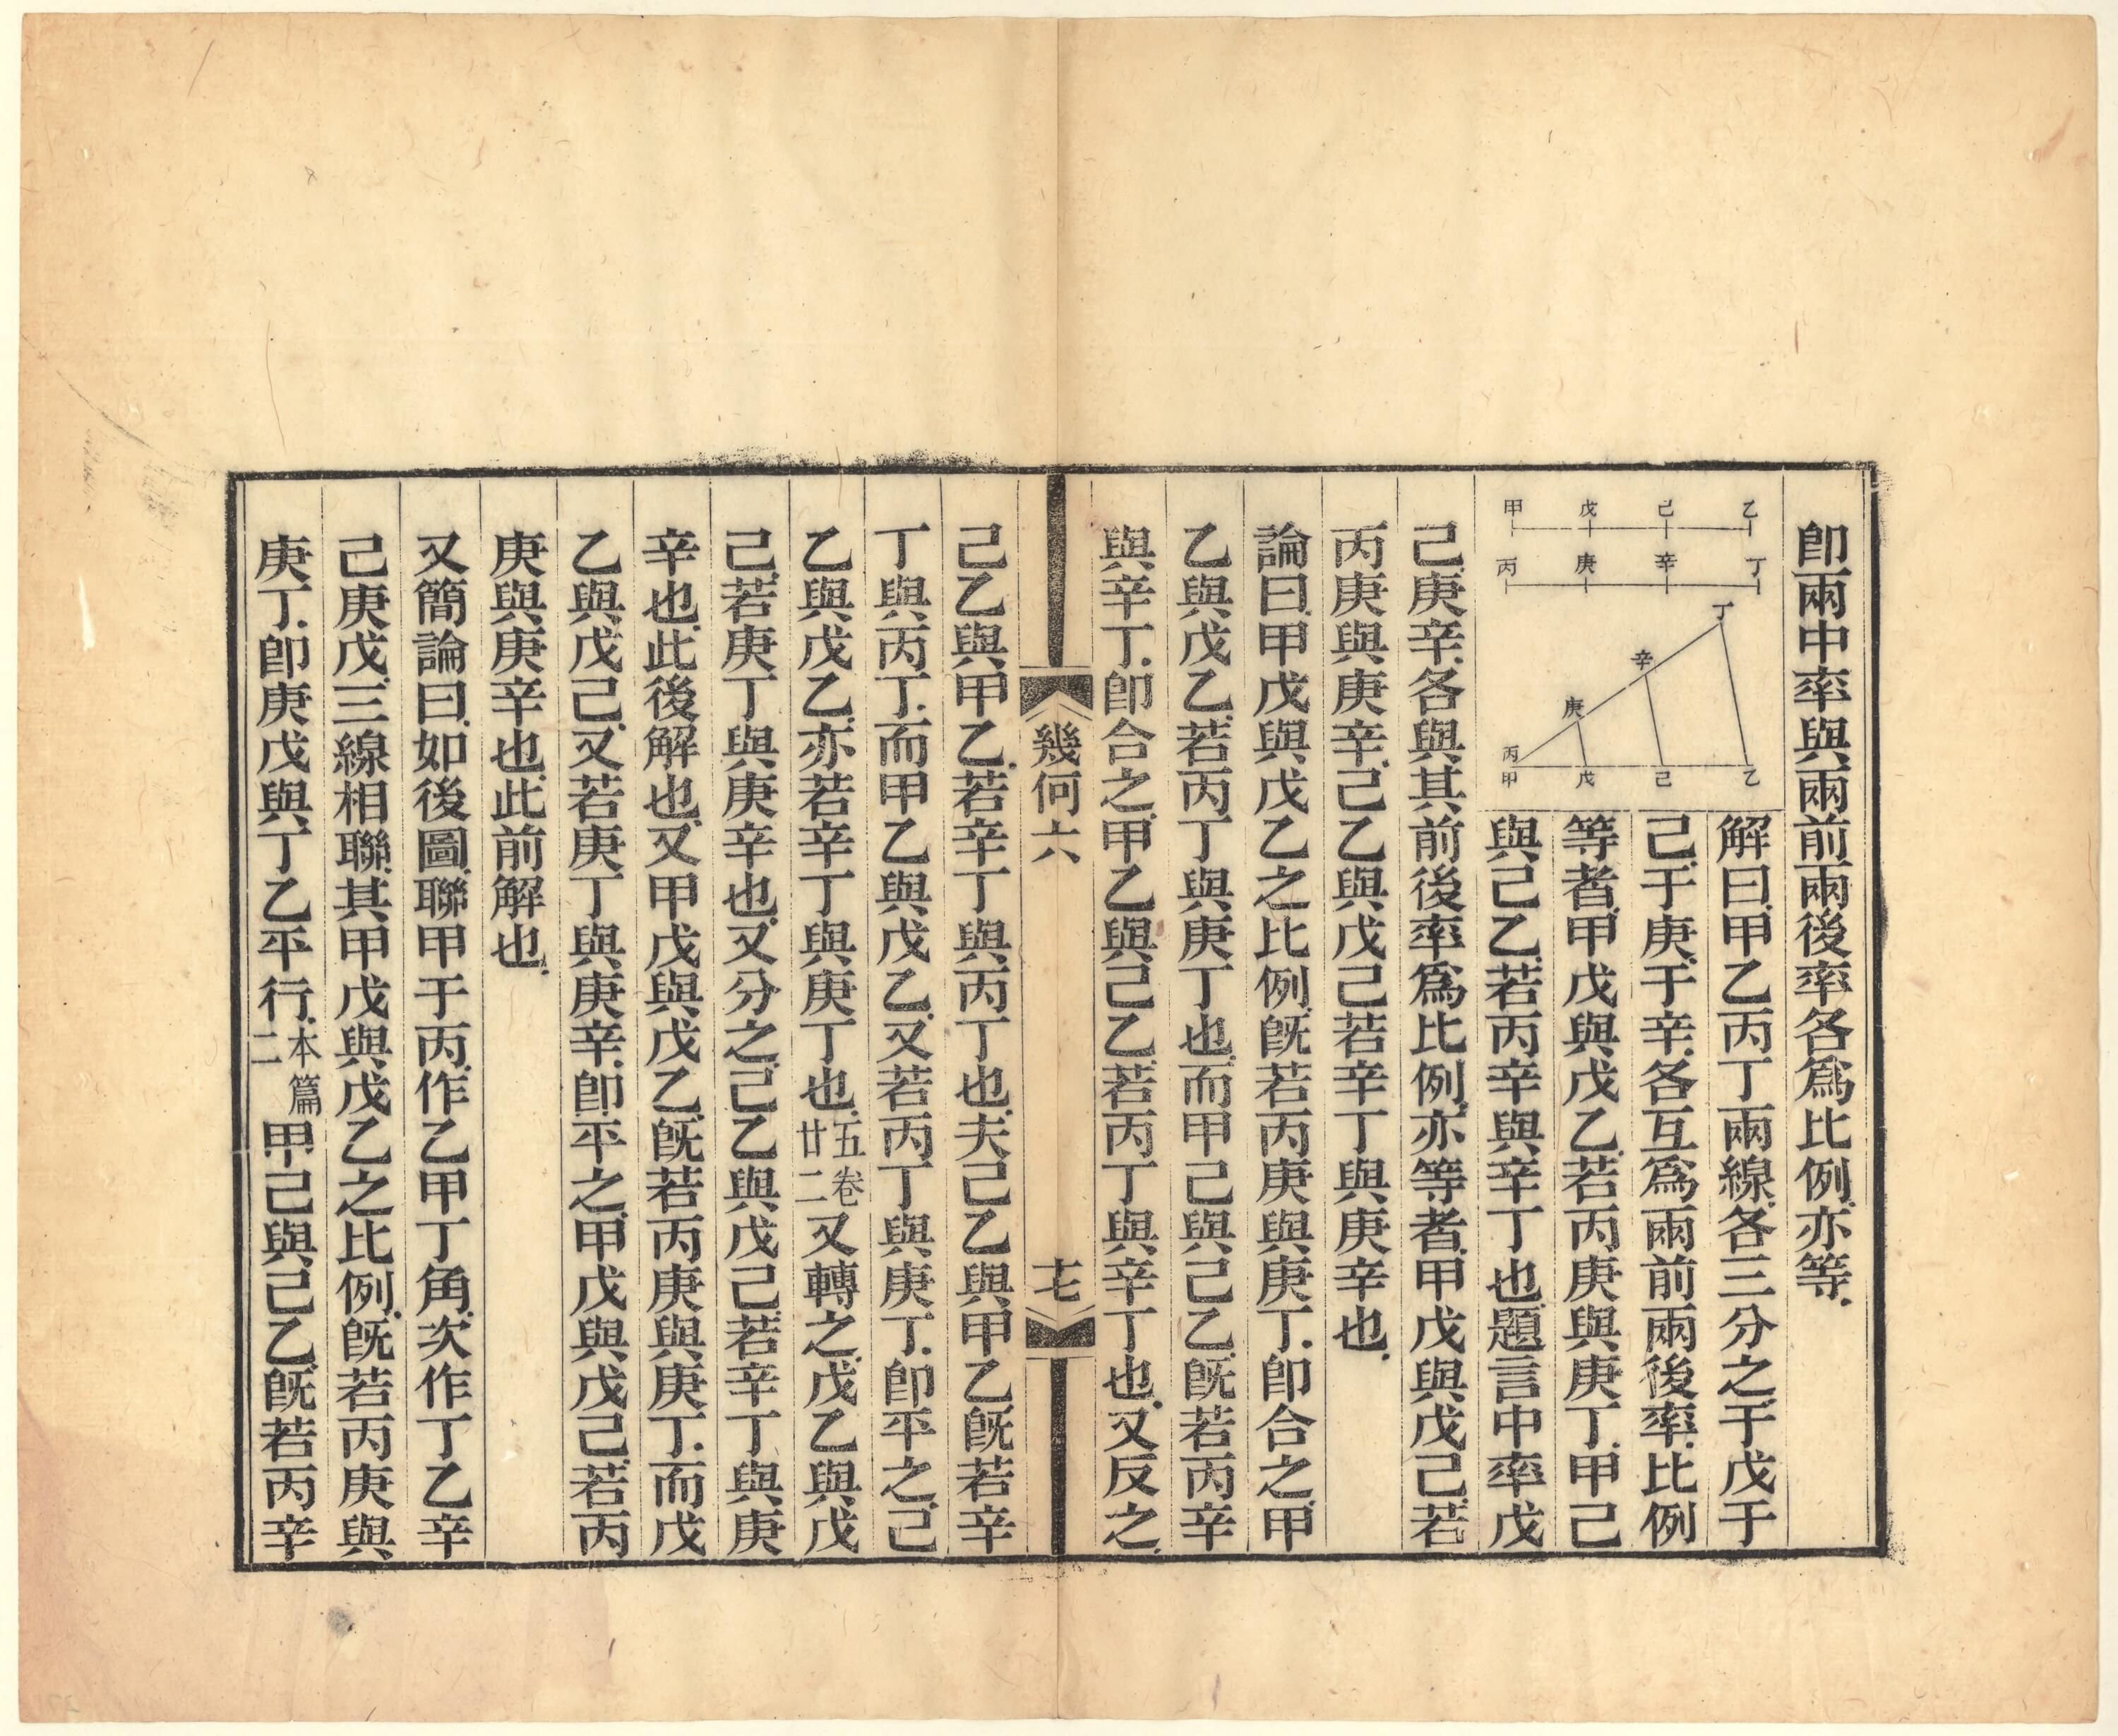 即兩中率與兩前兩後率各爲比例亦等.
甲 戊 己 乙
丙 庚 辛 丁
丁
辛
庚
丙
甲 戊 己 乙
解曰.甲乙丙丁兩線.各三分之.于戊于
己.于庚.于辛.各互爲兩前兩後率.比例
等者.甲戊與戊乙.若丙庚與庚丁.甲己
與己乙.若丙辛與辛丁也.題言中率戊
己.庚辛.各與其前後率爲比例.亦等者.甲戊與戊己.若
丙庚與庚辛.己乙與戊己若辛丁與庚辛也.
論曰.甲戊與戊乙之比例.旣若丙庚與庚丁.即合之.甲
乙與戊乙.若丙丁與庚丁也.而甲己與己乙.旣若丙辛
與辛丁.即合之.甲乙與己乙.若丙丁與辛丁也.又反之.
幾何六
十七
己乙與甲乙.若辛丁與丙丁也.夫己乙與甲乙旣若辛
丁與丙丁.而甲乙與戊乙.又若丙丁與庚丁.即平之.己
乙與戊乙.亦若辛丁與庚丁也.五卷廿二又轉之.戊乙與戊
己.若庚丁與庚辛也.又分之.己乙與戊己.若辛丁與庚
辛也.此後解也.又甲戊與戊乙.旣若丙庚與庚丁.而戊
乙與戊己.又若庚丁與庚辛.即平之.甲戊與戊己.若丙
庚與庚辛也.此前解也.
又簡論曰.如後圖.聯甲于丙.作乙甲丁角.次作丁乙辛
己庚戊三線相聯.其甲戊與戊乙之比例.旣若丙庚與
庚丁.即庚戊與丁乙平行.本篇二甲己與己乙.旣若丙辛